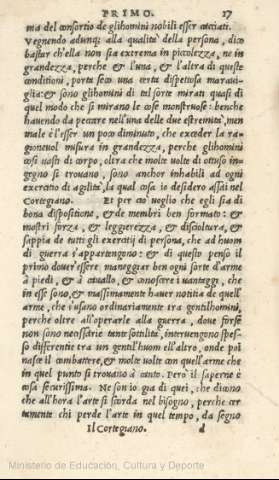 PRIMO. 17
ma del consortio de glihomini nobili esser cacciati.
Vegnendo adunq; alla qualita della persona, dico
bastar ch'ella non sia extrema in piccolezza, ne in
grandezza, perche & l'una, & l'altra di queste
conditioni, porta seco una certa dispettosa maraui,
glia: & sono glihomini di tal sorte mirati quasi di
quel modo che si mirano le cose monstruose: benche
hauendo da peccare nell'una delle due estremità, men
male è l'esser un poco diminuto, che exceder la ra,
gioneuol misura in grandezza, perche glihomini
cosi uasti di corpo, oltra che molte uolte di ottuso in,
gegno si trouano, sono anchor inhabili ad ogni
exercitio di agilità, la qual cosa io desidero assai nel
Cortegiano. Et per ciò uoglio che egli sia di
bona dispositione, & de membri ben formato: &
mostri forza, & leggierezza, & discioltura, &
sappia de tutti gli exercitij di persona, che ad huom
di guerra s'appartengono: & di questo penso il
primo douer essere maneggiar ben ogni sorte d'arme
à piedi, & à cauallo, & conoscere i uantaggi, che
in esse sono, & massimamente hauer notitia di quell'
arme, che s'usano ordinariamente tra gentilhomini,
perche oltre all'operarle alla guerra, doue forse
non sono necessarie tante sottilità, interuengono spes,
so differentie tra un gentil'huom e l'altro, onde poi
nasce il combattere, & molte uolte con quell'arme che
in quel punto si trouano à canto. Però il saperne è
cosa securissima. Ne son io gia di quei, che dicono
che all'hora l'arte si scorda nel bisogno, perche cer
tamente chi perde l'arte in quel tempo, da segno
Il Cortegiano. d
Ministerio de Educación, Cultura y Deporte